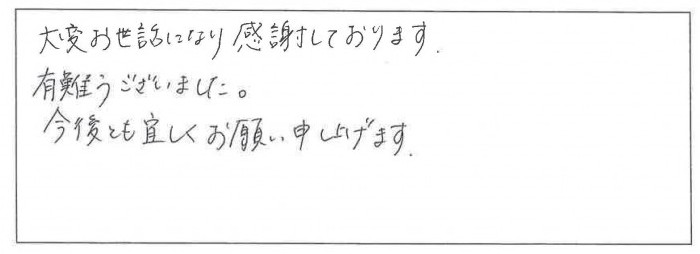 大変お世話になり感謝しております.
有難うございました。
今後とも宜しくお願い申し上げます.